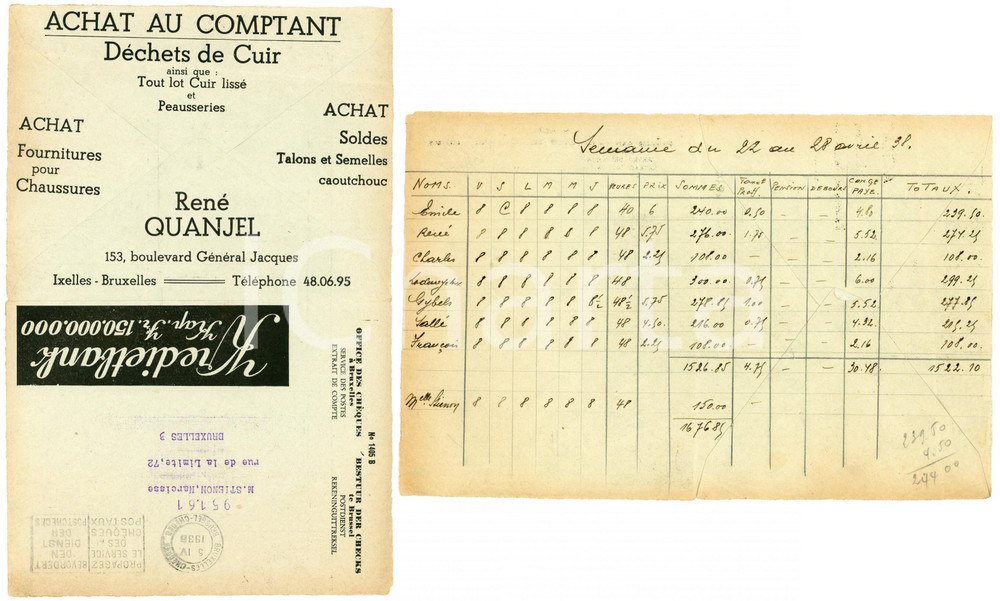 ACHAT AU COMPTANT
Déchets de Cuir
ainsi que :
Tout lot Cuir lissé
et
Peausseries
ACHAT
Fournitures
pour
Chaussures
ACHAT
Soldes
Talons et Semelles
caoutchouc
René
QUANJEL
153, boulevard Général Jacques
Ixelles - Bruxelles Téléphone 48.06.95
Kredietbank
Kap. Fr. 150.000.000
No 1405 B
OFFICE DES CHÈQUES BESTUUR DER CHECKS
à Bruxelles te Brussel
SERVICE DES POSTES POSTDIENST
EXTRAIT DE COMPTE REKENINGUITTREKSEL
95161
M.STIENON,Narcisse
rue de la Limite,72
BRUXELLES 3
5 IV
1938
PROPAGEZ BEVORDERT
LE SERVICE DEN
DES DIENST
CHÈQUES DER
POSTAUX POSTCHECKS
Semaine du 22 au 28 avril 38.
NOMS. V S L M M J HEURES PRIX SOMMES PENSION CONGÉ PAYÉ. TOTAUX.
Emile 8 C 8 8 8 8 40 6 240.00 0.50 – – 239.50
René 8 8 8 8 8 8 48 5.75 276.00 1.75 – – 5.52 274.25
Charles 8 8 8 8 8 8 48 2.25 108.00 – – – 2.16 108.00
8 8 8 8 8 8 48 300.00 0.75 – – 6.00 299.25
Gybels 8 8 8 8 8 8½ 48½ 5.75 278.85 1.00 – – 5.52 277.85
Sallé 8 8 8 8 8 8 48 4.50 216.00 0.75 – – 4.32 215.25
François 8 8 8 8 8 8 48 2.25 108.00 – – 2.16 108.00
1526.85 4.75 – – 30.48 1522.10
Melle 8 8 8 8 8 8 48 150.00 –
1676.85
239.50
4.50
244.00
iCharta